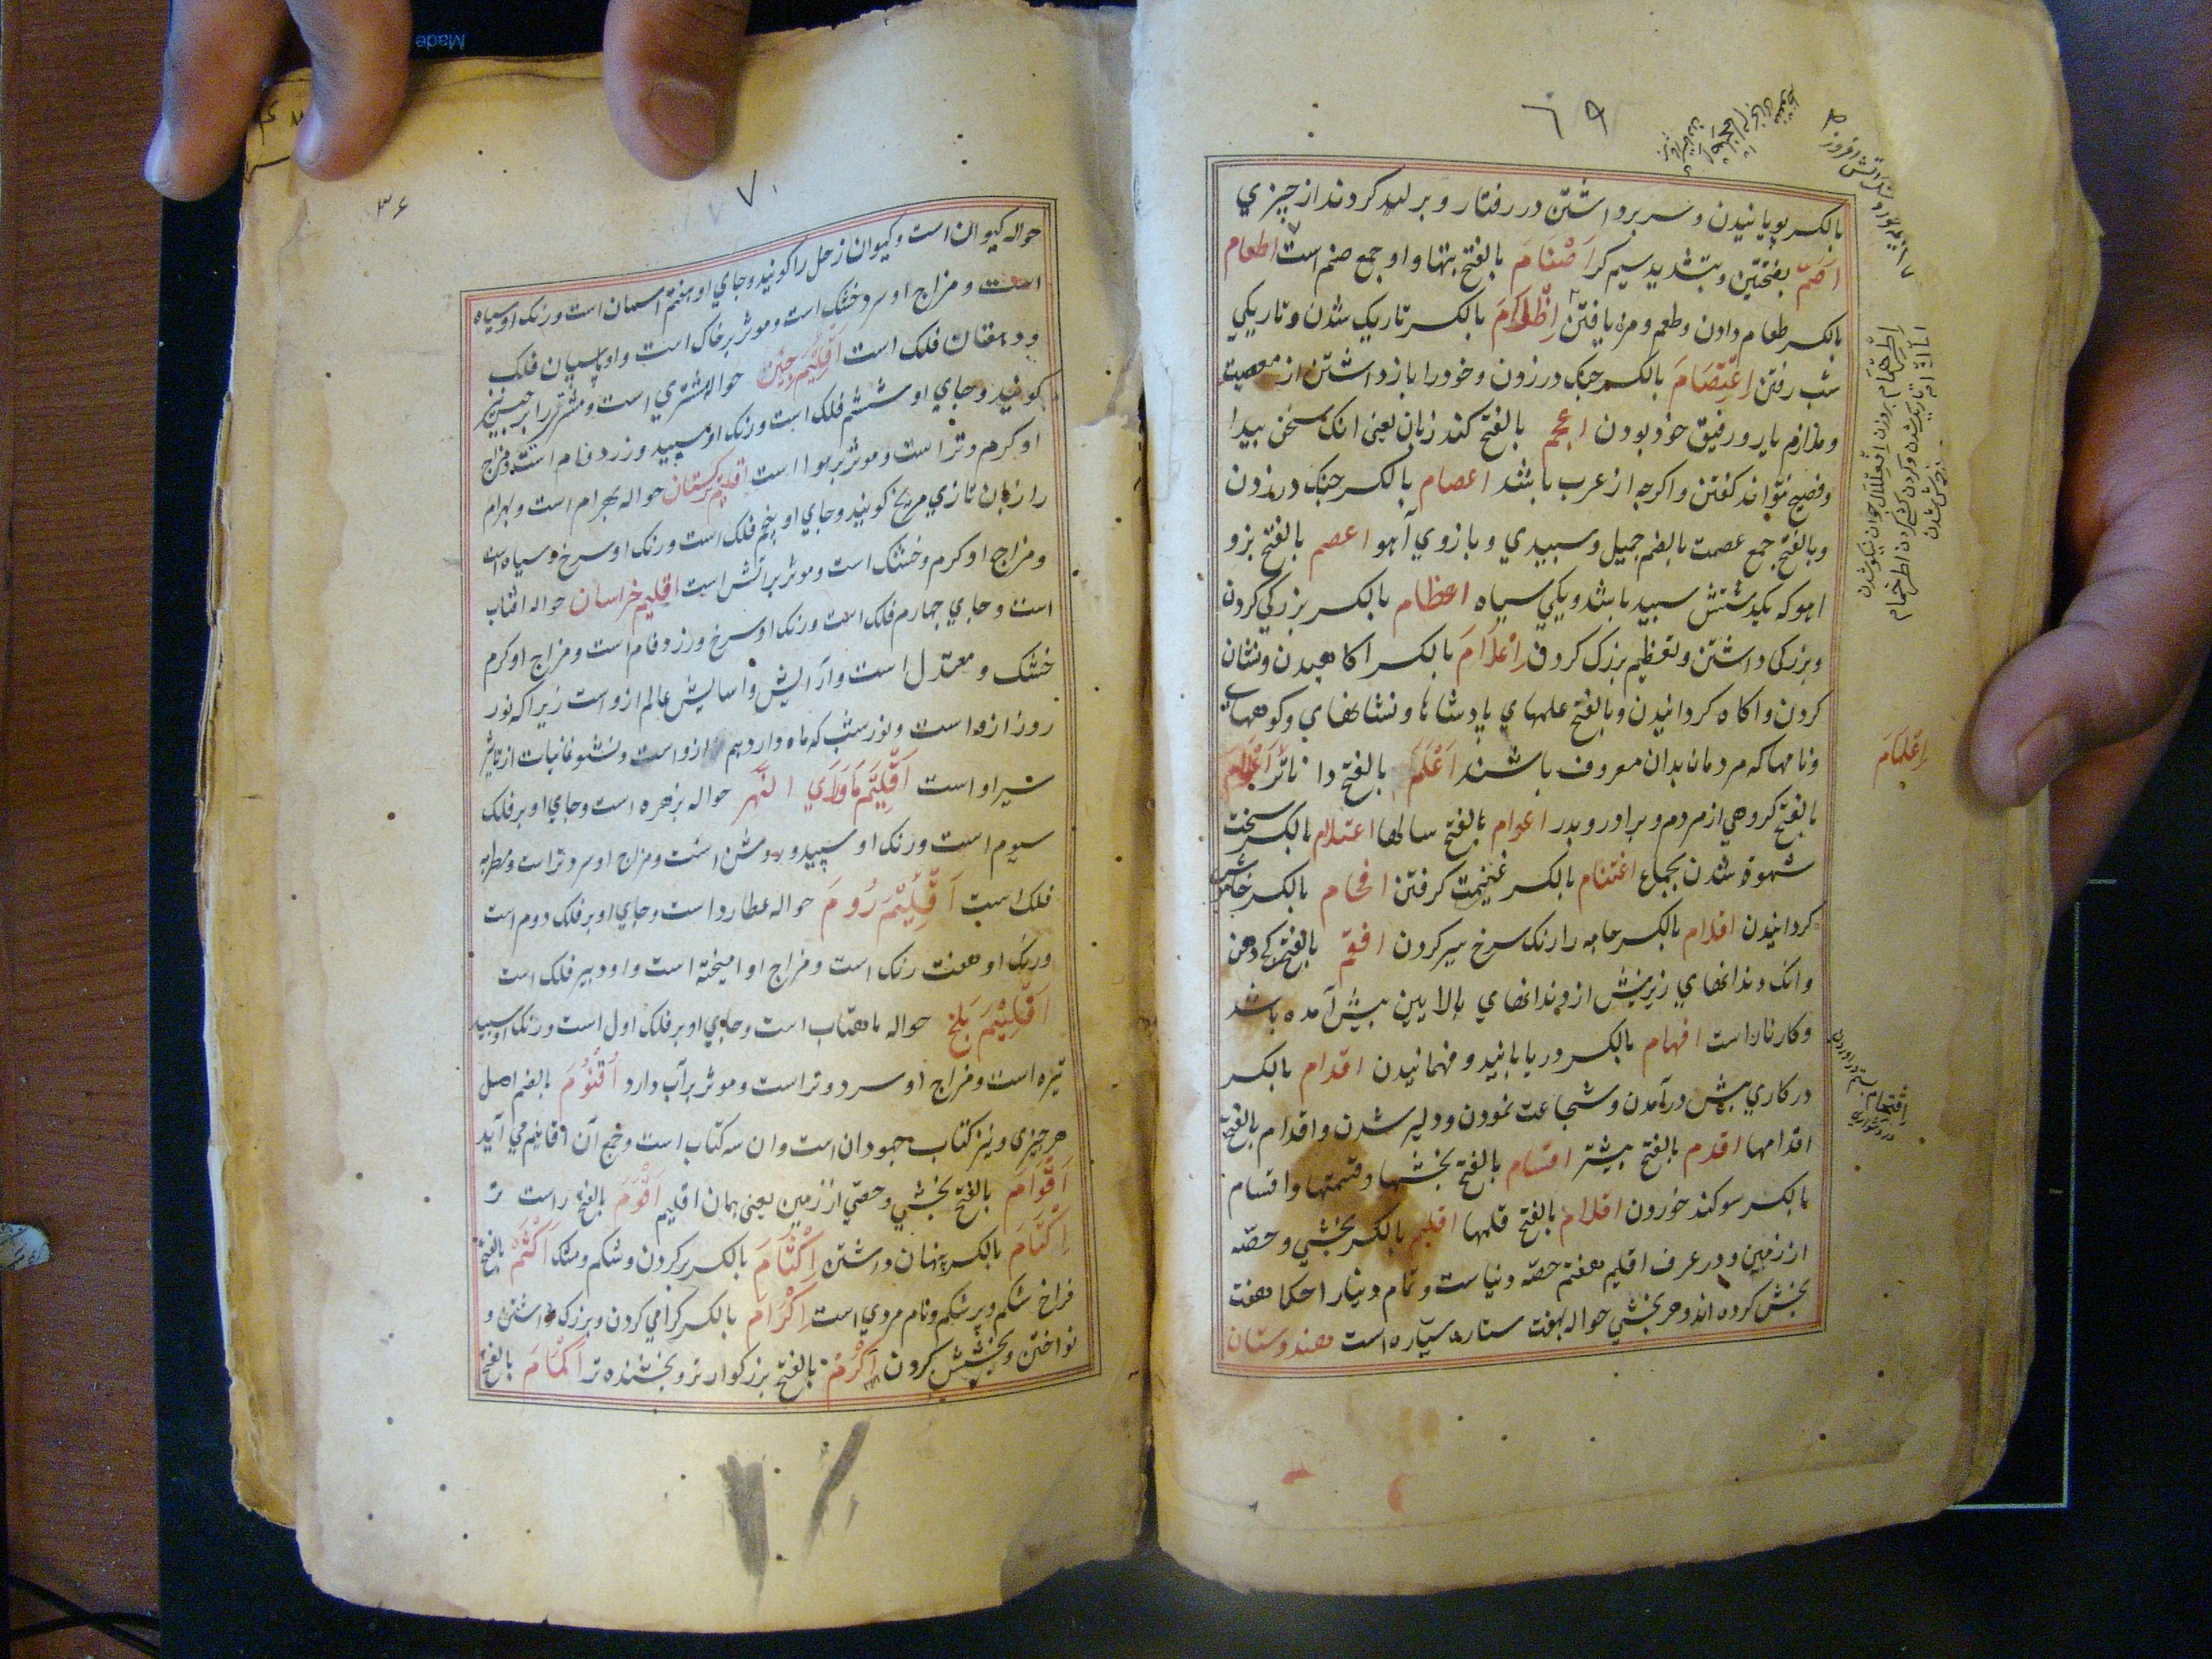 ٦٩
بالکسر پویانیدن و سر برداشتن در رفتار و بر لید کردند از چیزی
اَصَمّ بفتحتین و بتشدید سیم کر اَصْنَامَ بالفتح بتها و او جمع صنم است اطعام
بالکسر طعام دادن و طعم و مزه یافتن اِظْلَامَ بالکسر تاریک شدن و تاریکی
شب رفتن اِعْتِصَامَ بالکسر چنک در زدن و خود را باز داشتن از معصیت
و ملازم یار و رفیق خود بودن اعجم بالفتح کند زبان یعنی انک سخن پیدا
و فصیح نتواند کفتن و اکرچه از عرب باشد اعصام بالکسر چنک در زدن
و بالفتح جمع عصمت بالضم جمیل و سپیدی و بازوی آهو اعصم بالفتح بز و
اهو که یکدستش سپید باشد و یکی سیاه اعظام بالکسر بزرکی کردن
و بزرکی داشتن و تعظیم بزرک کردن اِعْلَامَ بالکسر اکاهیدن و نشان
کردن و اکاه کردانیدن و بالفتح علمهای پادشاها و نشانهای و کوههای
و نامها که مردمان بدان معروف باشند اَعْلَمَ بالفتح داناتر اَعْمَامَ
بالفتح کروهی از مردم و برادر و پدر اعوام بالفتح سالها اغتلام بالکسر سخت
شهوة شدن بجماع اغتنام بالکسر غنیمت کرفتن افحام بالکسر خاموش
کردانیدن افدام بالکسر جامه را رنک سرخ سیر کردن افقم بالفتح کج دهن
و انک دندانهای زیرینش از دندانهای بالایین پیش آمده باشد
و کار نان است افهام بالکسر دریابانید و فهمانیدن اقدام بالکسر
در کاری پیش درآمدن و شجاعت نمودن و دلیر شدن و اقدام بالفتح
اقدامها اقدم بالفتح پیشتر اقسام بالفتح بخشها و قسمتها و اقسام
بالکسر سوکند خوردن اقلام بالفتح قلمها اقلیم بالکسر بخشی و حصّه
از زمین و در عرف اقلیم هفتم حصّه دنیاست و تمام دنیا را حکما هفت
بخش کرده اند و هر بخشی حواله بهفت ستاره سیّاره است هندوستان
اِطْرِهْمَام بروزن اقعلال جوان نیکو شدن
اِعْلِمَامَ
اِقْتِحَام
در دشواری
٧٠
۳۶
حواله کیوان است و کیوان زحل را کویند و جای او هفتم اسمان است و رنک او سیاه
است و مزاج او سرد خشک است و موثر بر خاک است و او پاسبان فلک
و دهقان فلک است اَقْلِیْم چین حواله مشتری است و مشتری را برجیس نیز
کویند و جای او ششم فلک است و رنک او سپید و زرد فام است و مزاج
او کرم و تر است و موثر بر هوا است اقلیم ترکستان حواله بهرام است و بهرام
را زبان تازی مریخ کویند و جای او پنجم فلک است و رنک او سرخ و سیاه است
و مزاج او کرم و خشک است و موثر بر آتش است اقلیم خراسان حواله افتاب
است و جای چهارم فلک است و رنک او سرخ و زرد فام است و مزاج او کرم
خشک و معتدل است و آرایش و اسایش عالم ازو است زیرا که نور
روز ازو است و نور شب که ماه دارد هم ازو است و نشو نما نبات از تاثیر
شیر او است اَقْلِیْم مَاوَرَای النَّهر حواله بزهره است و جای او بر فلک
سیوم است و رنک او سپید و روشن است و مزاج او سرد تر است و مطربه
فلک است اَقْلِیْمَ رُومَ حواله عطارد است و جای او بر فلک دوم است
و رنک او هفت رنک است و مزاج او امیخته است و او دبیر فلک است
اَقْلِیْمَ بَلخ حواله ماهتاب است و جای او بر فلک اول است و رنک او سپید
تیره است و مزاج او سرد و تر است و موثر بر آب دارد اُقْنُوْمَ بالضم اصل
هر چیزی و نیز کتاب جهودان است و ان سه کتاب است و جمع آن اقانیم می آید
اَقْوَامَ بالفتح بخشی و حصّی از زمین یعنی همان اقلیم اَقْوَمُ بالفتح راست تر
اِکْتَامَ بالکسر پنهان داشتن اِکْثَامَ بالکسر پر کردن و شکم و مشک اَکْثَمْ بالفتح
فراخ شکم و پر شکم و نام مردی است اِکْرَامَ بالکسر کرامی کردن و بزرک داشتن و
نواختن و بخشش کردن اَکْرَمْ بالفتح بزرکوارتر و بخشنده تر اَکْمَامَ بالفتح
Made